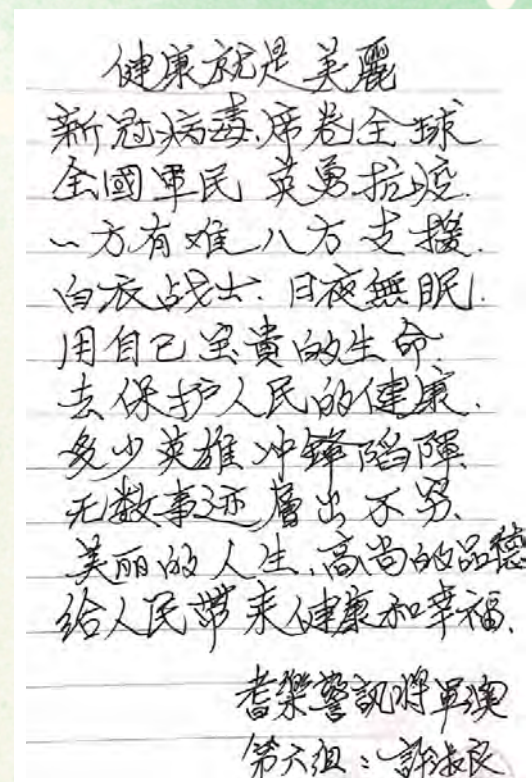 健康就是美麗
新冠病毒.席卷全球
全國軍民 英勇抗疫.
一方有难八方支援.
白衣战士.日夜無眠.
用自己宝貴的生命.
去保护人民的健康.
多少英雄冲鋒陷陣.
无数事迹層出不穷.
美丽的人生.高尚的品德
给人民帶来健康和幸福.
耆樂警訊將軍澳
第六組:謝淑良